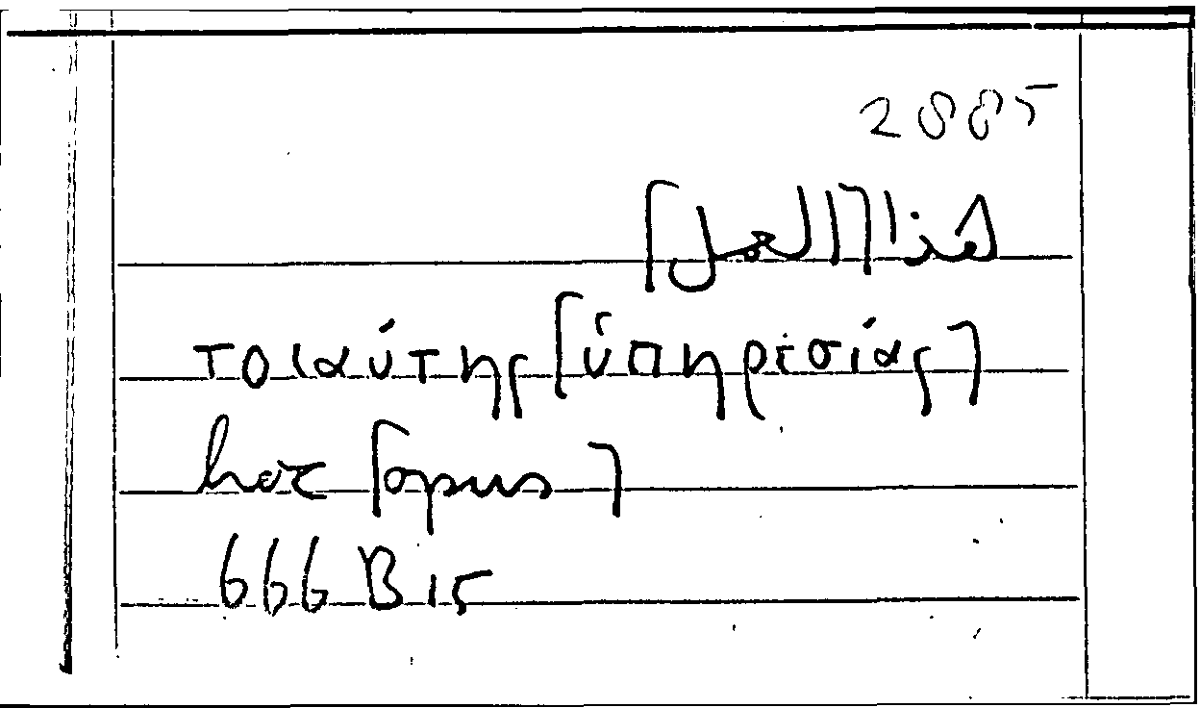 2885
هذا [العمل]
τοιαύτης [ὑπηρεσίας]
hoc [opus]
666 B 15